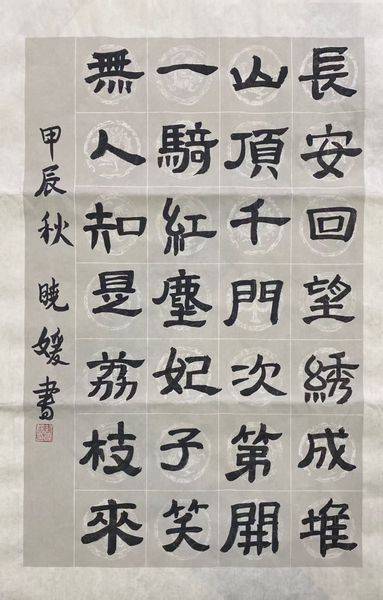 長安回望綉成堆
山頂千門次第開
一騎紅塵妃子笑
無人知是荔枝來
甲辰秋 曉媛書